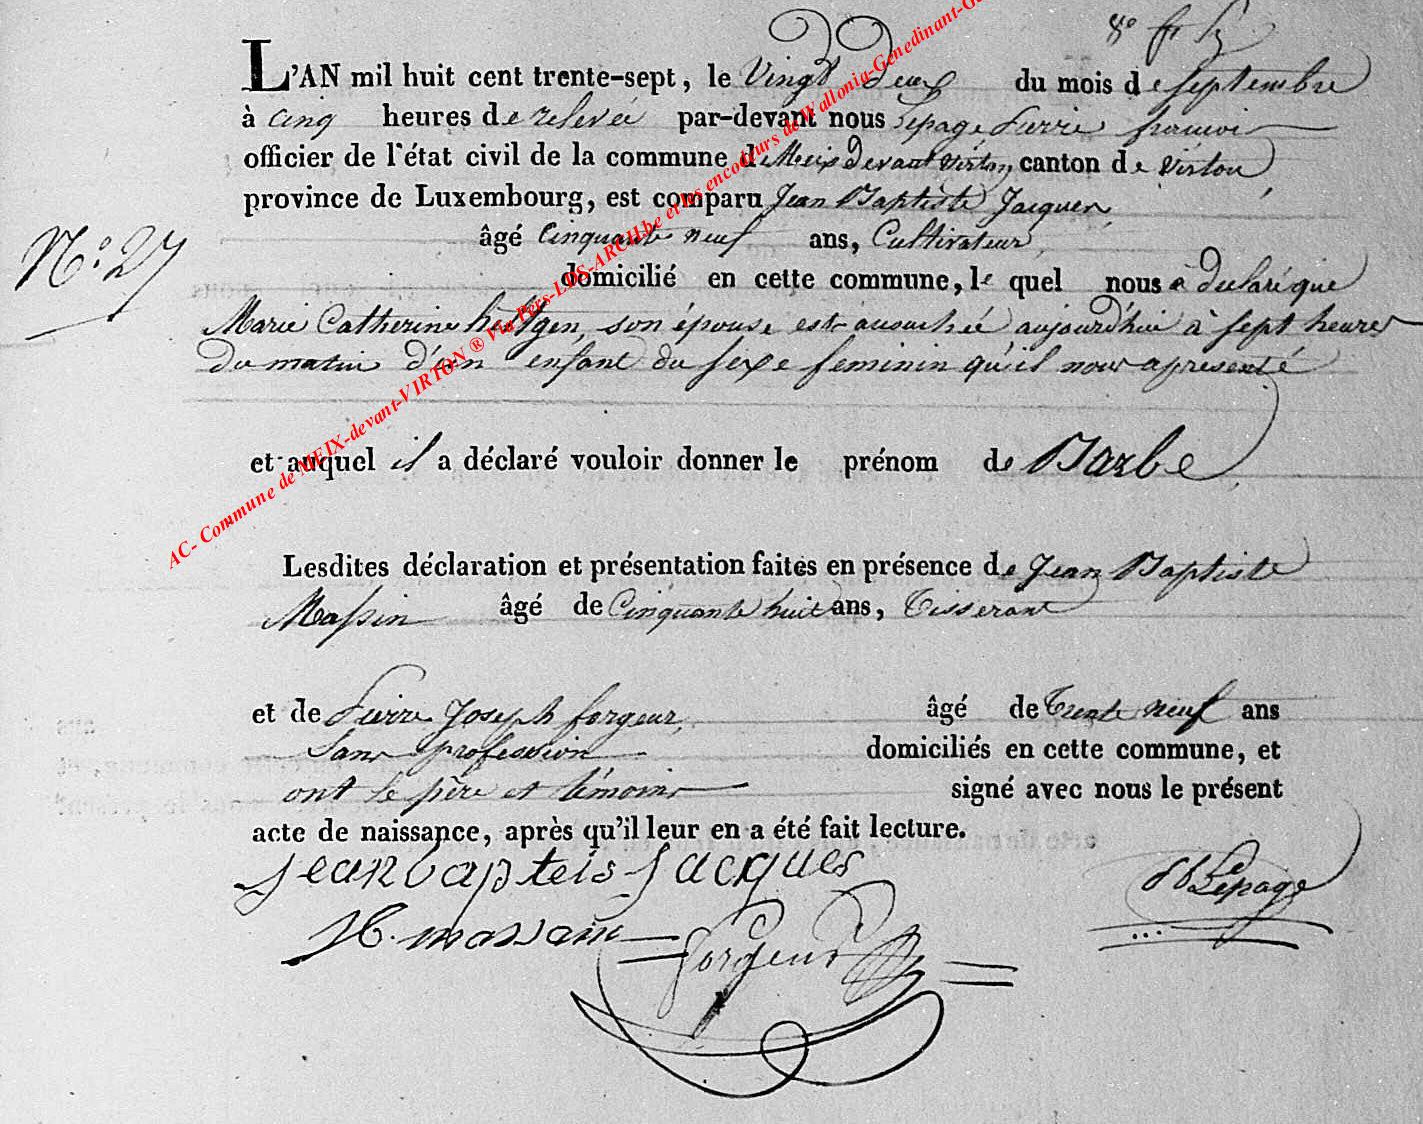 L'AN mil huit cent trente-sept, le Vingt deux du mois de septembre
à cinq heures de relevée par-devant nous Lepage Pierre
officier de l'état civil de la commune de Meix devant virton, canton de virton
province de Luxembourg, est comparu Jean Baptiste Jacques,
N.° 27
âgé Cinquante neuf ans, Cultivateur
domicilié en cette commune, le quel nous a declaré que
Marie Catherine son épouse est accouchée aujourd'hui à sept heures
du matin d'un enfant du sexe feminin qu'il nous a presenté
et auquel il a déclaré vouloir donner le prénom de Barbe
Lesdites déclaration et présentation faites en présence de Jean Baptiste
Massin âgé de Cinquante huit ans, Tisserant
et de Pierre Joseph forgeur, âgé de Trente neuf ans
Sans profession domiciliés en cette commune, et
ont le père et témoins signé avec nous le présent
acte de naissance, après qu'il leur en a été fait lecture.
Jean bapteis Jacques
Lepage
massain
Forgeur
AC- Commune de MEIX-devant-VIRTON ® Via Pers-LDS-ARCH.be et les encodeurs de Wallonia-Genedinant-